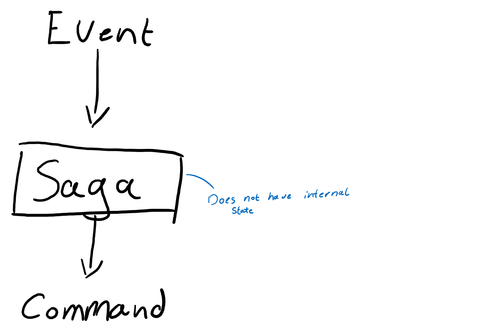 Event
Saga
Does not have internal
state
Command